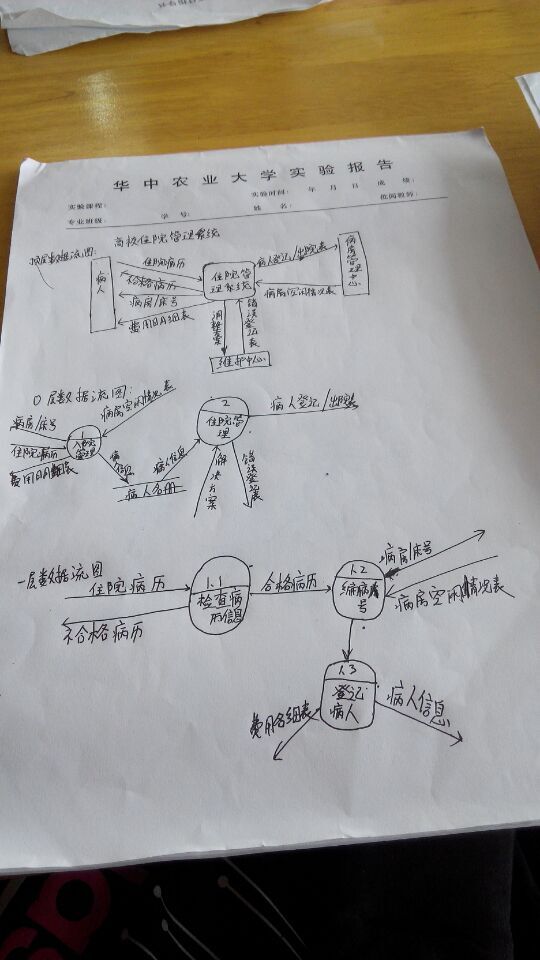 华中农业大学实验报告
实验课程: 实验时间: 年 月 日 成 绩:
专业班级: 学 号: 姓 名: 批阅教师:
高校住院管理系统
顶层数据流图:
病人
住院病历
不合格病历
病房/床号
费用日明细表
住院管理系统
病人登记/出院表
病房空闲情况表
病房管理中心
错误登记表
维护中心
0层数据流图:
病房空闲情况表
病房/床号
住院病历
费用日明细表
1
入院管理
病人信息
病人名册
病人信息
2
住院管理
病人登记/出院表
解决方案
错误登记表
一层数据流图
住院病历
不合格病历
1.1
检查病历信息
合格病历
1.2
编病房号
病房/床号
病房空闲情况表
1.3
登记病人
费用名细表
病人信息